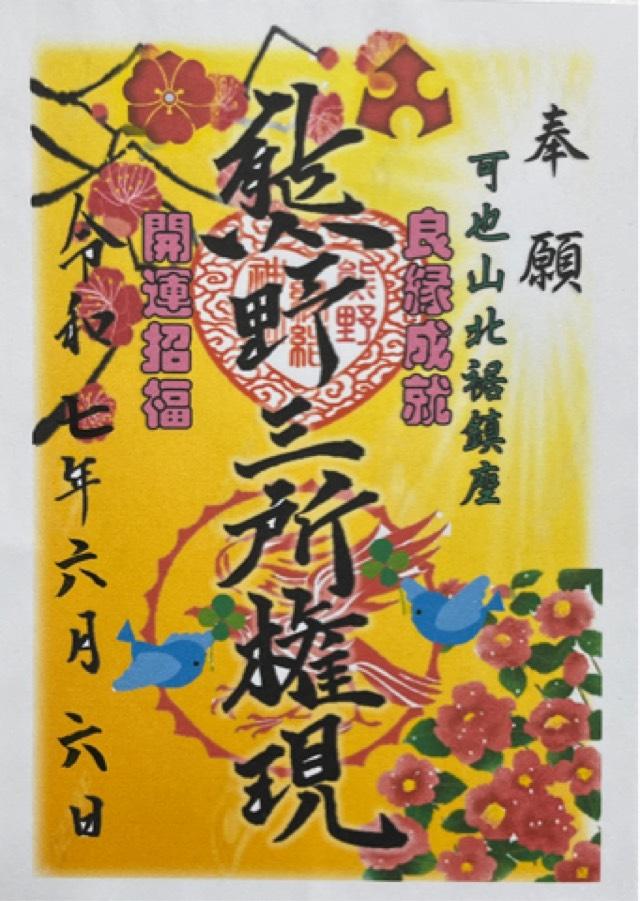 奉願
可也山北裾鎮座
良縁成就
熊野三所権現
熊野
開運招福
令和七年六月六日